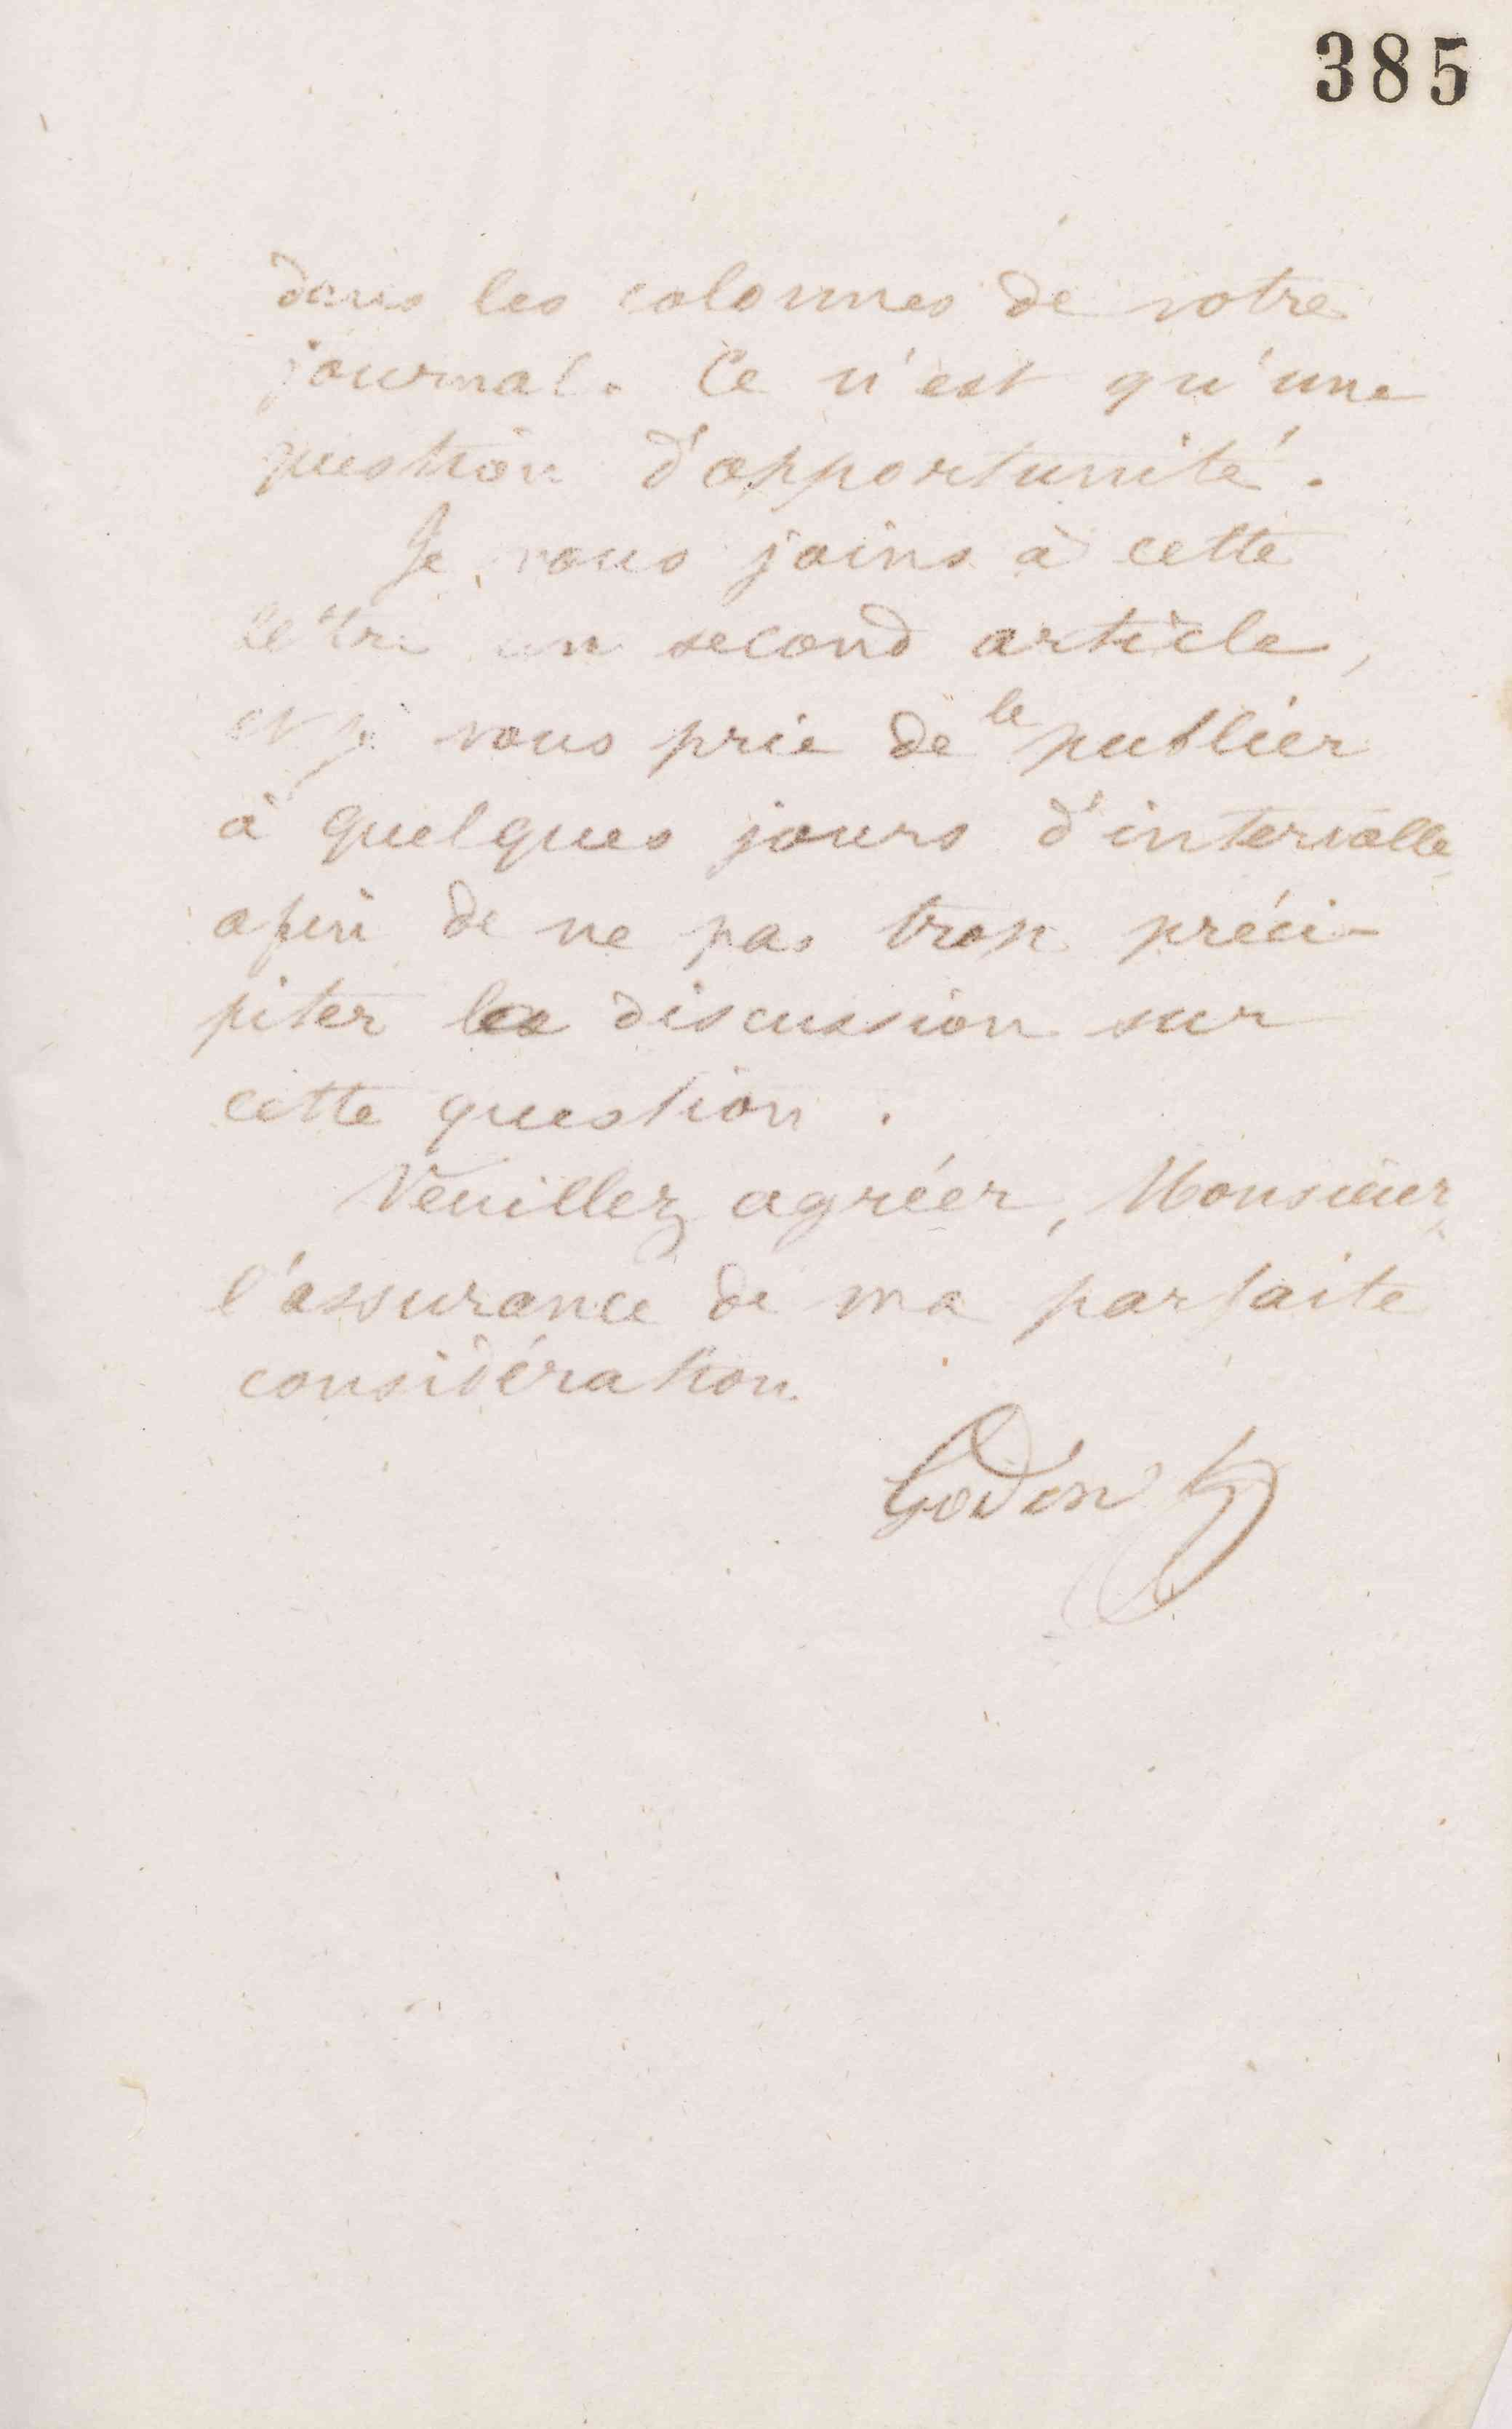 385
dans les colonnes de votre
journal. Ce n'est qu'une
question d'opportunité.
Je vous joins à cette
lettre un second article,
et je vous prie de le publier
à quelques jours d'intervalle,
afin de ne pas trop préci-
piter la discussion sur
cette question.
Veuillez agréer, Monsieur,
l'assurance de ma parfaite
considération
Godin